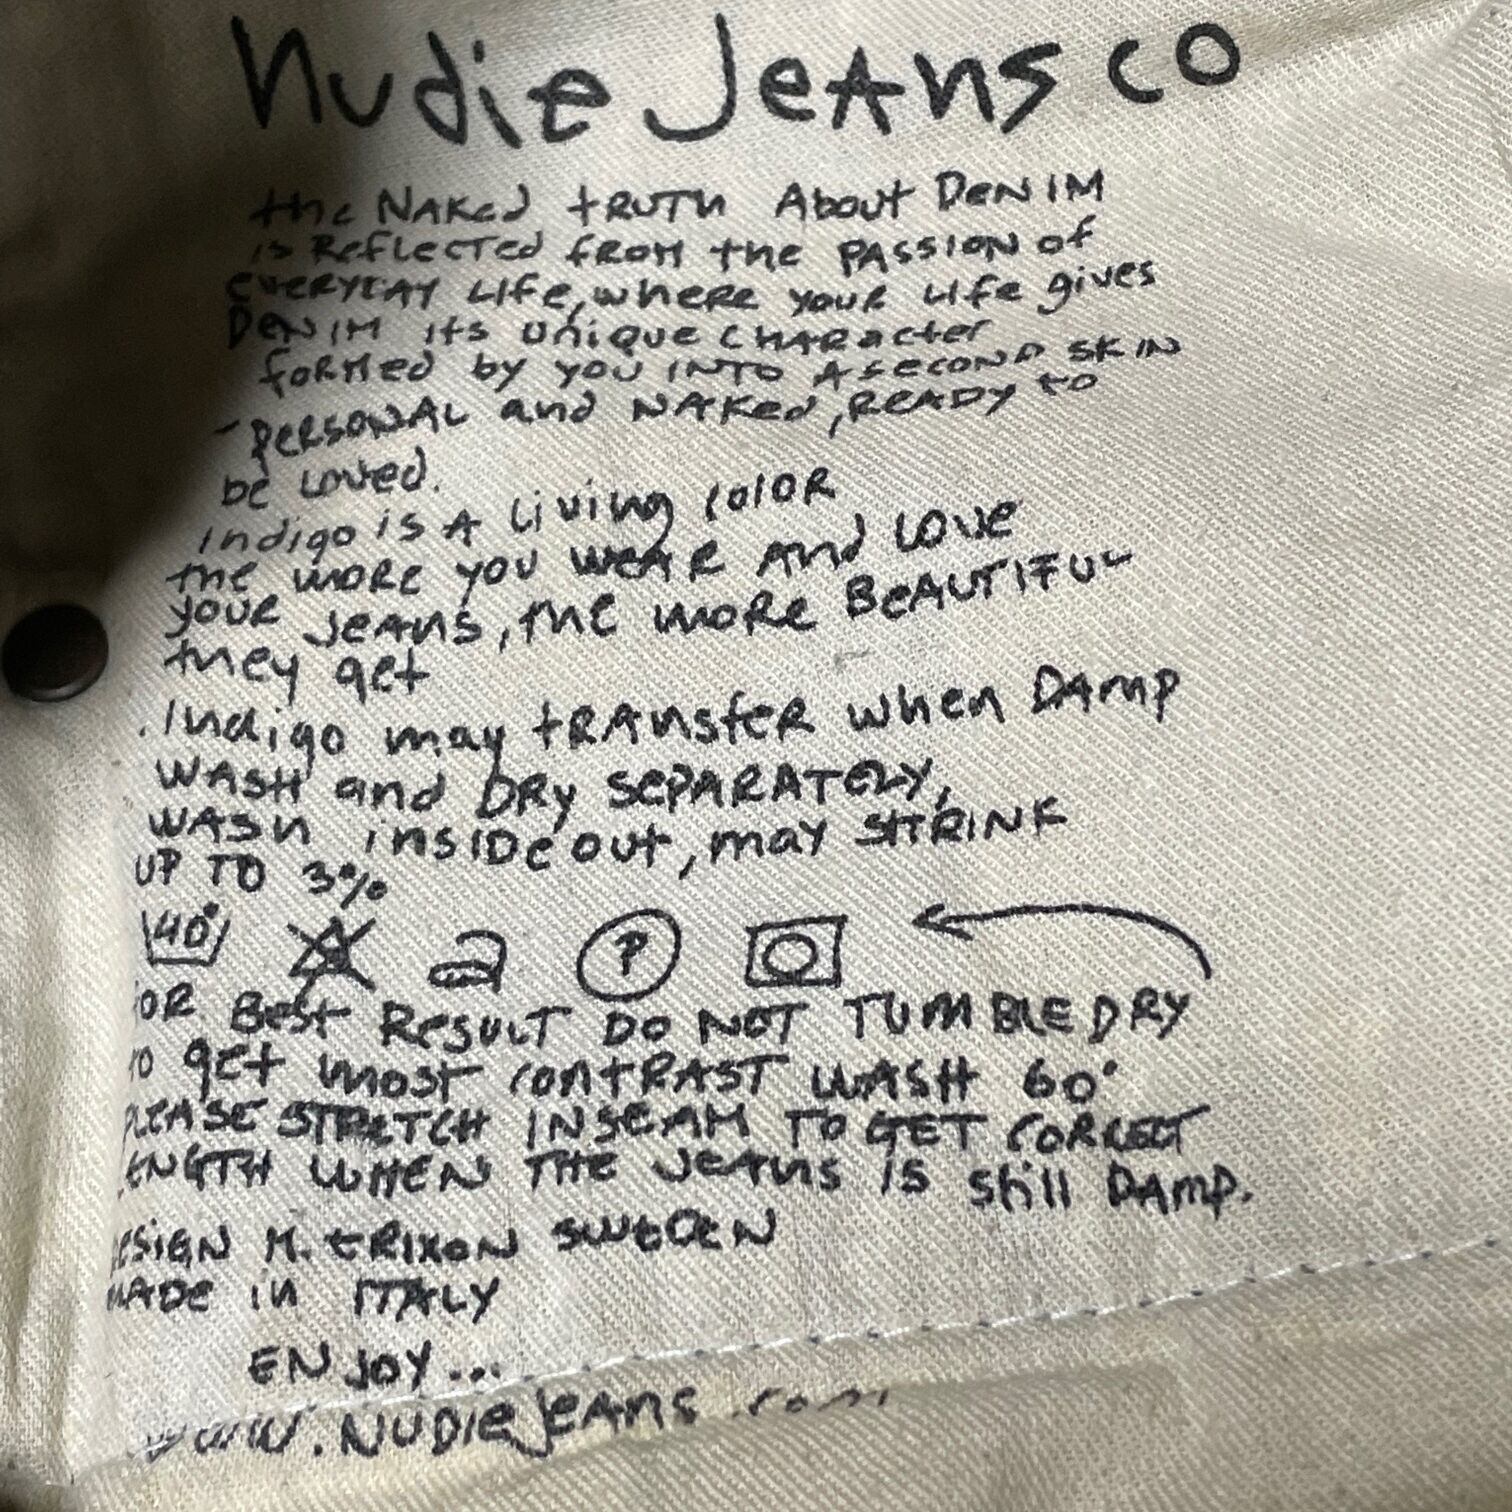 nudie Jeans co
the NAKed tRUTH About DeNIM
is ReflecTed fROM the PASSION of
eVERYDAY Life, wheRE youR Life gives
DENIM its unique CHARacter
foRMed by you INTO A seCOND SKIN
- PERSONAL and NAKed, READY to
be Loved.
Indigo is A Living coloR
the moRE you weAR And Love
youR JEANS, the moRe BeAUTIFUL
they get
. Indigo may tRAnsfeR when DAmp
WASH and DRy SePARATELY,
WASH insIDe out, may SHRINK
UP TO 3%
40° P
FOR BeSt ResULT DO NOT TUMBLE DRY
TO get most contRAST WASH 60°
PLEASE STRETCH INSEAM TO GET CORRECT
LENGTH WHEN THE JeAns IS still DAmp.
DESIGN M. ERIXON SWEDEN
MADe in ITALY
ENJOY...
www.NUDIEJEAns.com